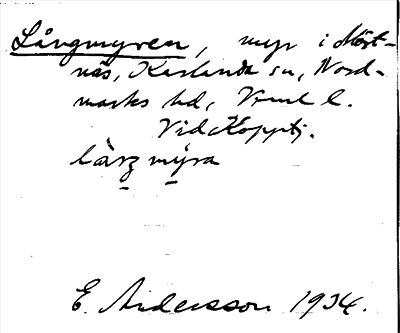 Långmyren, myr i Möst-
näs, Karlanda sn, Nord-
marks hd, Vrml l.
Vid Kopptj.
làrz mýra
E. Andersson 1934.